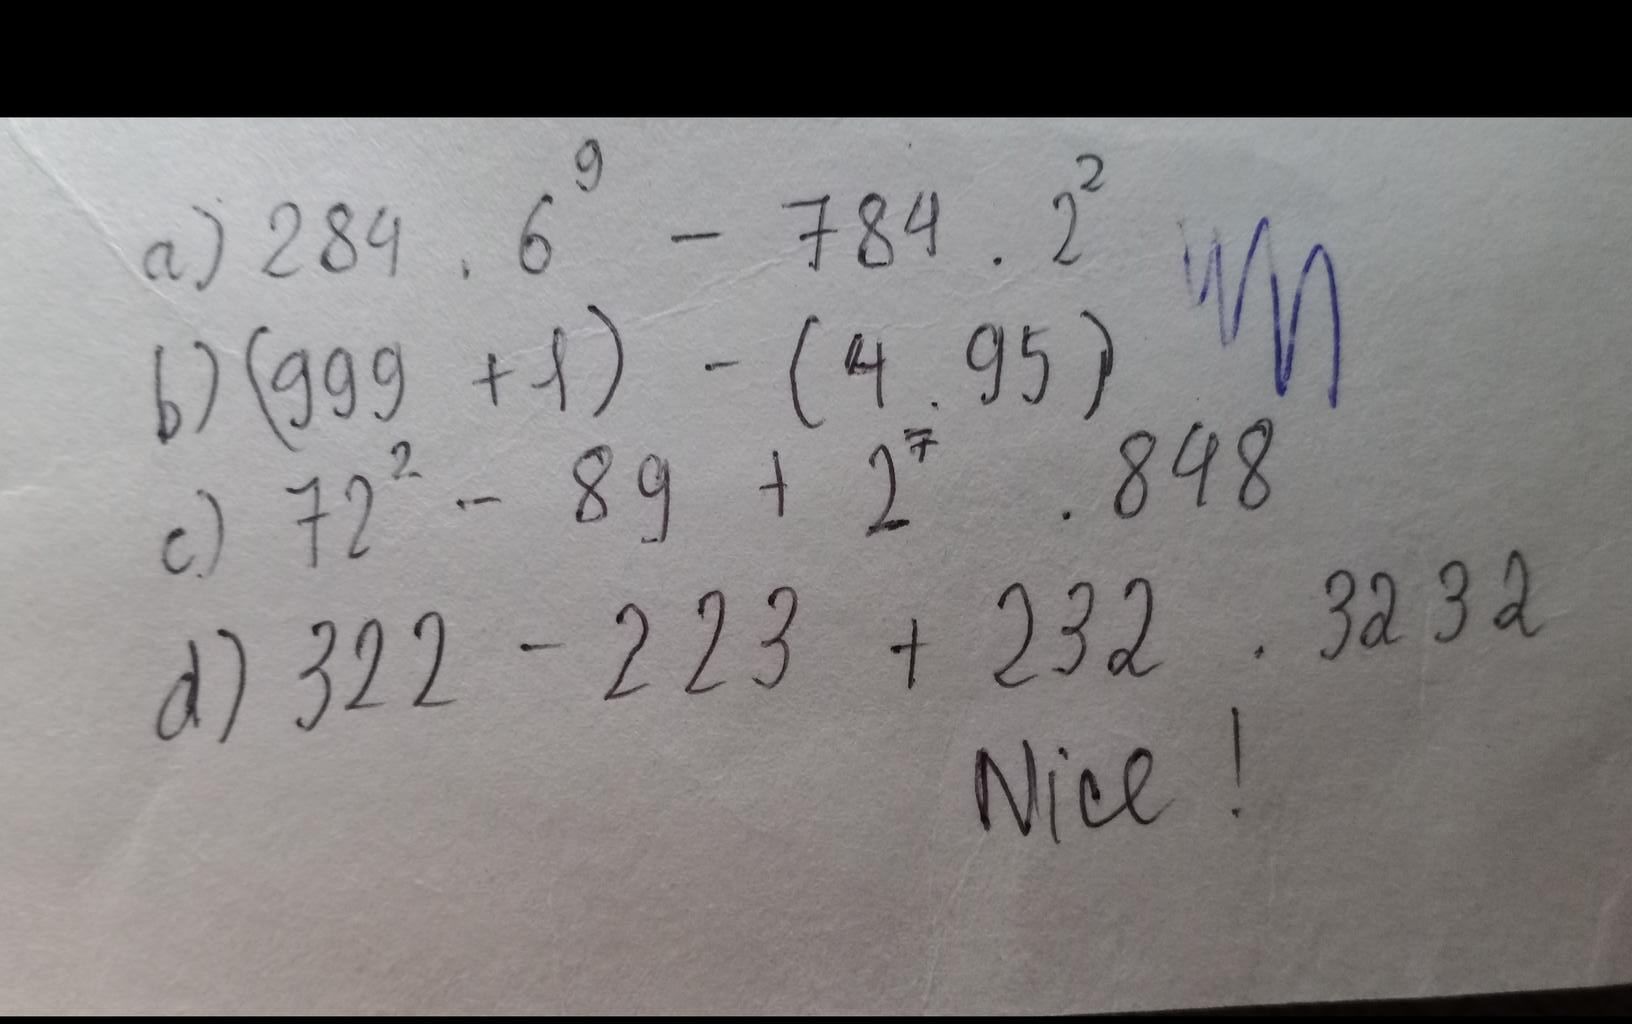 a) 284 . 6⁹ - 784 . 2²
b) (999 + 1) - (4 . 95)
c) 72² - 89 + 2⁷ . 848
d) 322 - 223 + 232 . 3232
Nice !